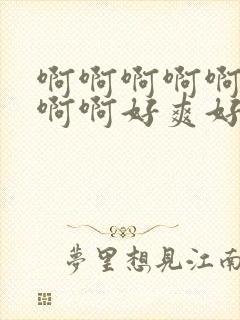 啊啊啊啊啊
啊啊好爽好
夢里想見江南